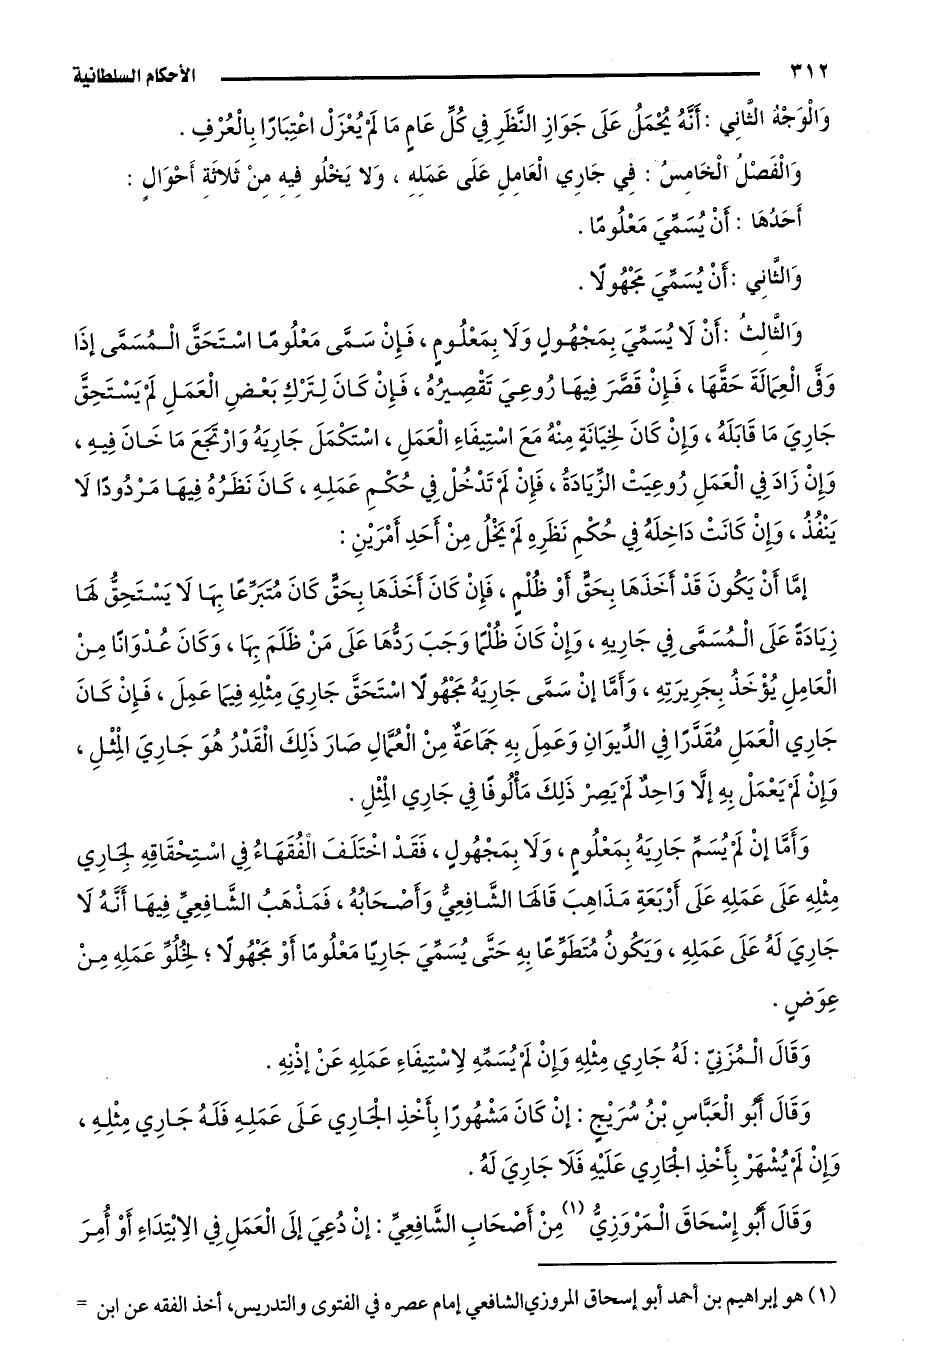 ٣١٢ الأحكام السلطانية
وَالْوَجْهُ الثَّانِي : أَنَّهُ يُحْمَلُ عَلَى جَوَازِ النَّظَرِ فِي كُلِّ عَامٍ مَا لَمْ يُعْزَلْ اعْتِبَارًا بِالْعُرْفِ .
وَالْفَصْلُ الْخَامِسُ : فِي جَارِي الْعَامِلِ عَلَى عَمَلِهِ ، وَلَا يَخْلُو فِيهِ مِنْ ثَلَاثَةِ أَحْوَالٍ :
أَحَدُهَا : أَنْ يُسَمِّيَ مَعْلُومًا .
وَالثَّانِي : أَنْ يُسَمِّيَ مَجْهُولًا .
وَالثَّالِثُ : أَنْ لَا يُسَمِّيَ بِمَجْهُولٍ وَلَا بِمَعْلُومٍ ، فَإِنْ سَمَّى مَعْلُومًا اسْتَحَقَّ الْمُسَمَّى إذَا
وَفَّى الْعِمَالَةَ حَقَّهَا ، فَإِنْ قَصَّرَ فِيهَا رُوعِيَ تَقْصِيرُهُ ، فَإِنْ كَانَ لِتَرْكِ بَعْضِ الْعَمَلِ لَمْ يَسْتَحِقَّ
جَارِيَ مَا قَابَلَهُ ، وَإِنْ كَانَ لِخِيَانَةٍ مِنْهُ مَعَ اسْتِيفَاءِ الْعَمَلِ ، اسْتَكْمَلَ جَارِيَهُ وَارْتَجَعَ مَا خَانَ فِيهِ ،
وَإِنْ زَادَ فِي الْعَمَلِ رُوعِيَتْ الزِّيَادَةُ ، فَإِنْ لَمْ تَدْخُلْ فِي حُكْمِ عَمَلِهِ ، كَانَ نَظَرُهُ فِيهَا مَرْدُودًا لَا
يَنْفُذُ ، وَإِنْ كَانَتْ دَاخِلَةً فِي حُكْمِ نَظَرِهِ لَمْ يَخْلُ مِنْ أَحَدِ أَمْرَيْنِ :
إمَّا أَنْ يَكُونَ قَدْ أَخَذَهَا بِحَقٍّ أَوْ ظُلْمٍ ، فَإِنْ كَانَ أَخَذَهَا بِحَقٍّ كَانَ مُتَبَرِّعًا بِهَا لَا يَسْتَحِقُّ لَهَا
زِيَادَةً عَلَى الْمُسَمَّى فِي جَارِيهِ ، وَإِنْ كَانَ ظُلْمًا وَجَبَ رَدُّهَا عَلَى مَنْ ظَلَمَ بِهَا ، وَكَانَ عُدْوَانًا مِنْ
الْعَامِلِ يُؤْخَذُ بِجَرِيرَتِهِ ، وَأَمَّا إنْ سَمَّى جَارِيَهُ مَجْهُولًا اسْتَحَقَّ جَارِيَ مِثْلِهِ فِيمَا عَمِلَ ، فَإِنْ كَانَ
جَارِي الْعَمَلِ مُقَدَّرًا فِي الدِّيوَانِ وَعَمِلَ بِهِ جَمَاعَةٌ مِنْ الْعُمَّالِ صَارَ ذَلِكَ الْقَدْرُ هُوَ جَارِيَ الْمِثْلِ ،
وَإِنْ لَمْ يَعْمَلْ بِهِ إلَّا وَاحِدٌ لَمْ يَصِرْ ذَلِكَ مَأْلُوفًا فِي جَارِي الْمِثْلِ .
وَأَمَّا إنْ لَمْ يُسَمِّ جَارِيَهُ بِمَعْلُومٍ ، وَلَا بِمَجْهُولٍ ، فَقَدْ اخْتَلَفَ الْفُقَهَاءُ فِي اسْتِحْقَاقِهِ لِجَارِي
مِثْلِهِ عَلَى عَمَلِهِ عَلَى أَرْبَعَةِ مَذَاهِبَ قَالَهَا الشَّافِعِيُّ وَأَصْحَابُهُ ، فَمَذْهَبُ الشَّافِعِيِّ فِيهَا أَنَّهُ لَا
جَارِيَ لَهُ عَلَى عَمَلِهِ ، وَيَكُونُ مُتَطَوِّعًا بِهِ حَتَّى يُسَمِّيَ جَارِيًا مَعْلُومًا أَوْ مَجْهُولًا ؛ لِخُلُوِّ عَمَلِهِ مِنْ
عِوَضٍ .
وَقَالَ الْمُزَنِيّ : لَهُ جَارِي مِثْلِهِ وَإِنْ لَمْ يُسَمِّهِ لِاسْتِيفَاءِ عَمَلِهِ عَنْ إذْنِهِ .
وَقَالَ أَبُو الْعَبَّاسِ بْنُ سُرَيْجٍ : إنْ كَانَ مَشْهُورًا بِأَخْذِ الْجَارِي عَلَى عَمَلِهِ فَلَهُ جَارِي مِثْلِهِ ،
وَإِنْ لَمْ يُشْهَرْ بِأَخْذِ الْجَارِي عَلَيْهِ فَلَا جَارِيَ لَهُ .
وَقَالَ أَبُو إِسْحَاقَ الْمَرْوَزِيُّ (١) مِنْ أَصْحَابِ الشَّافِعِيِّ : إنْ دُعِيَ إلَى الْعَمَلِ فِي الِابْتِدَاءِ أَوْ أُمِرَ
(١) هو إبراهيم بن أحمد أبو إسحاق المروزي الشافعي إمام عصره في الفتوى والتدريس، أخذ الفقه عن ابن =